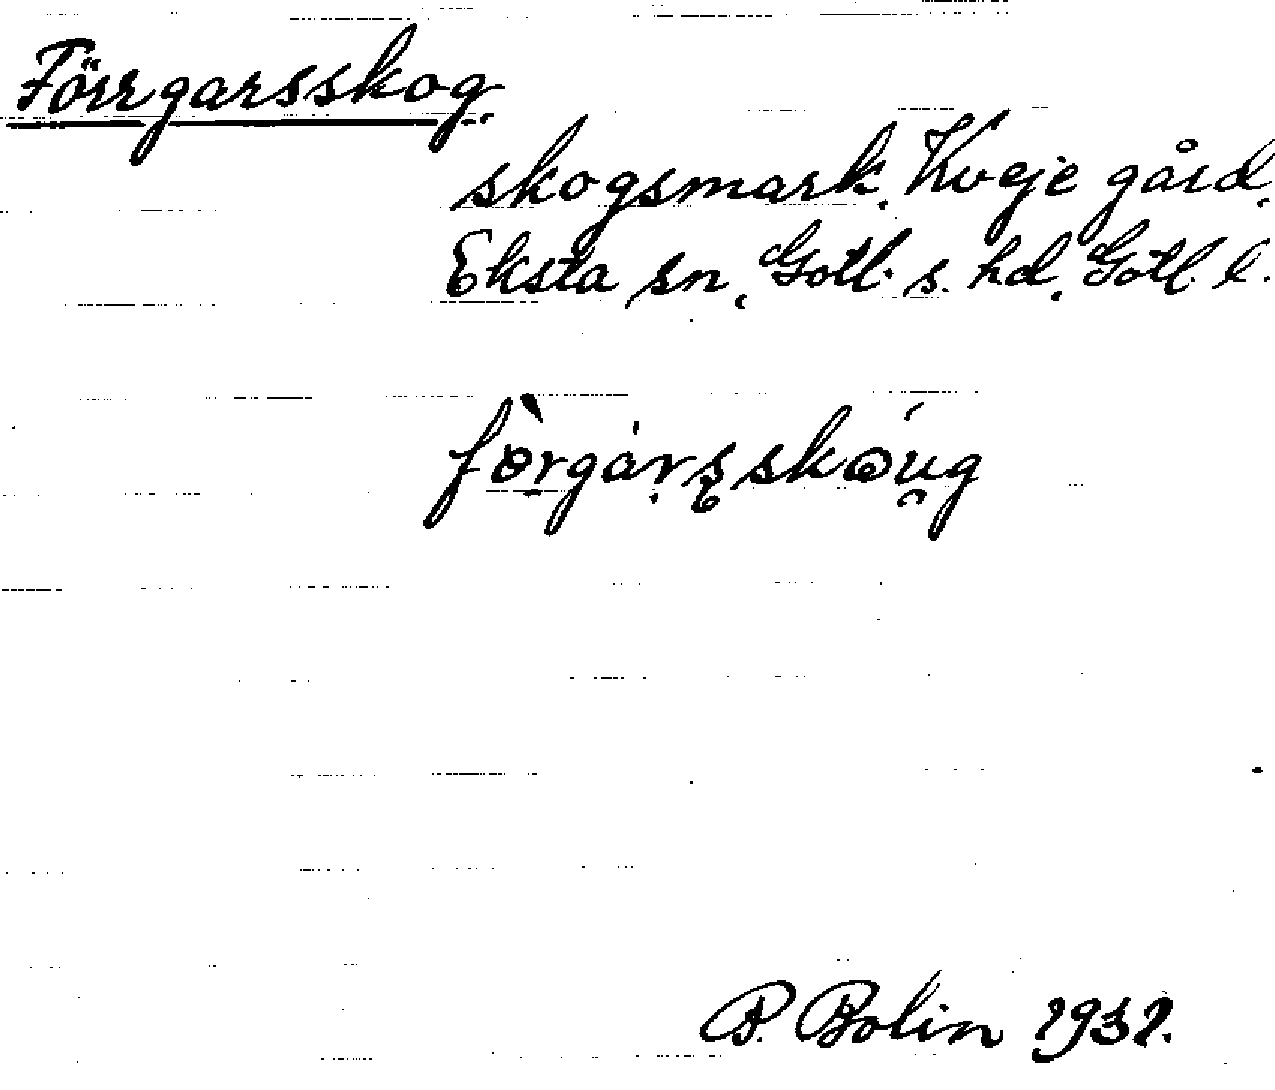 Förrgarsskog
skogsmark, Kveje gård,
Eksta sn, Gotl. s. hd, Gotl. l.
fòrgàrsskǝu̯g
P. Bolin 1931.